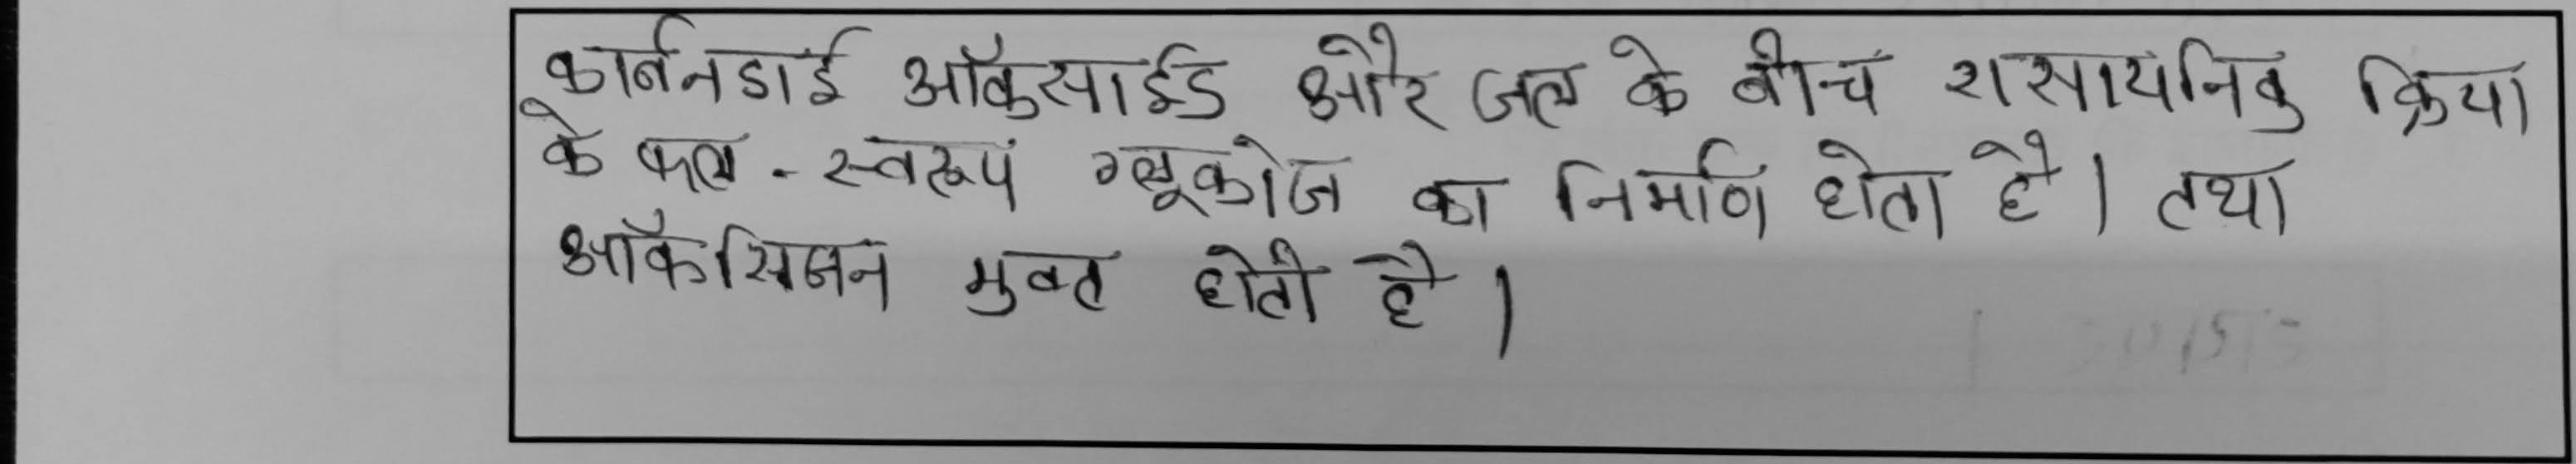 कार्बनडाई ऑकुसाईड और जल के बीच रासायनिक क्रिया
के फल - स्वरूप ग्लूकोज का निर्माण होता है। तथा
ऑकसिजन मुक्त होती है।